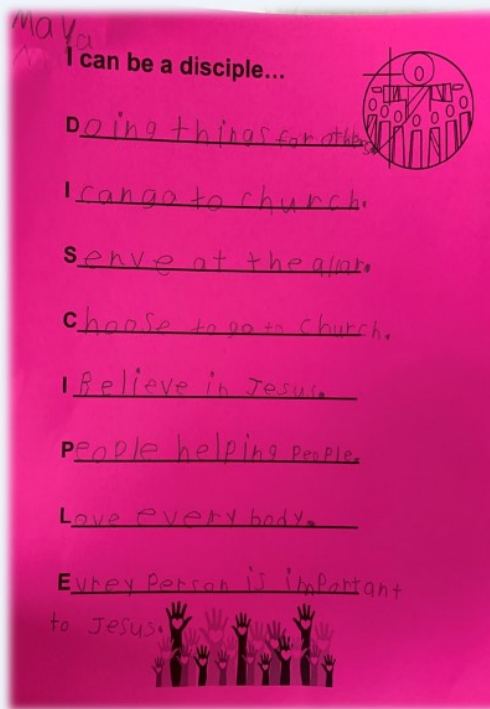 Maya
I can be a disciple...
Doing things for others.
I can go to church.
Serve at the altar.
Choose to go to church.
I Believe in Jesus.
People helping People.
Love every body.
Evrey Person is important
to Jesus.